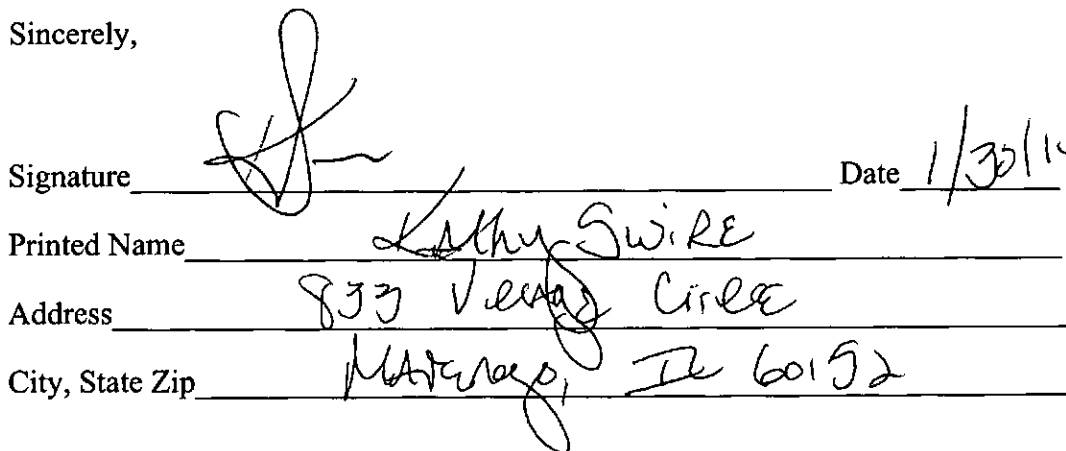 Sincerely,
Signature Date 1/30/1
Printed Name Kathy Swire
Address 833 Village Circle
City, State Zip Marengo, IL 60152